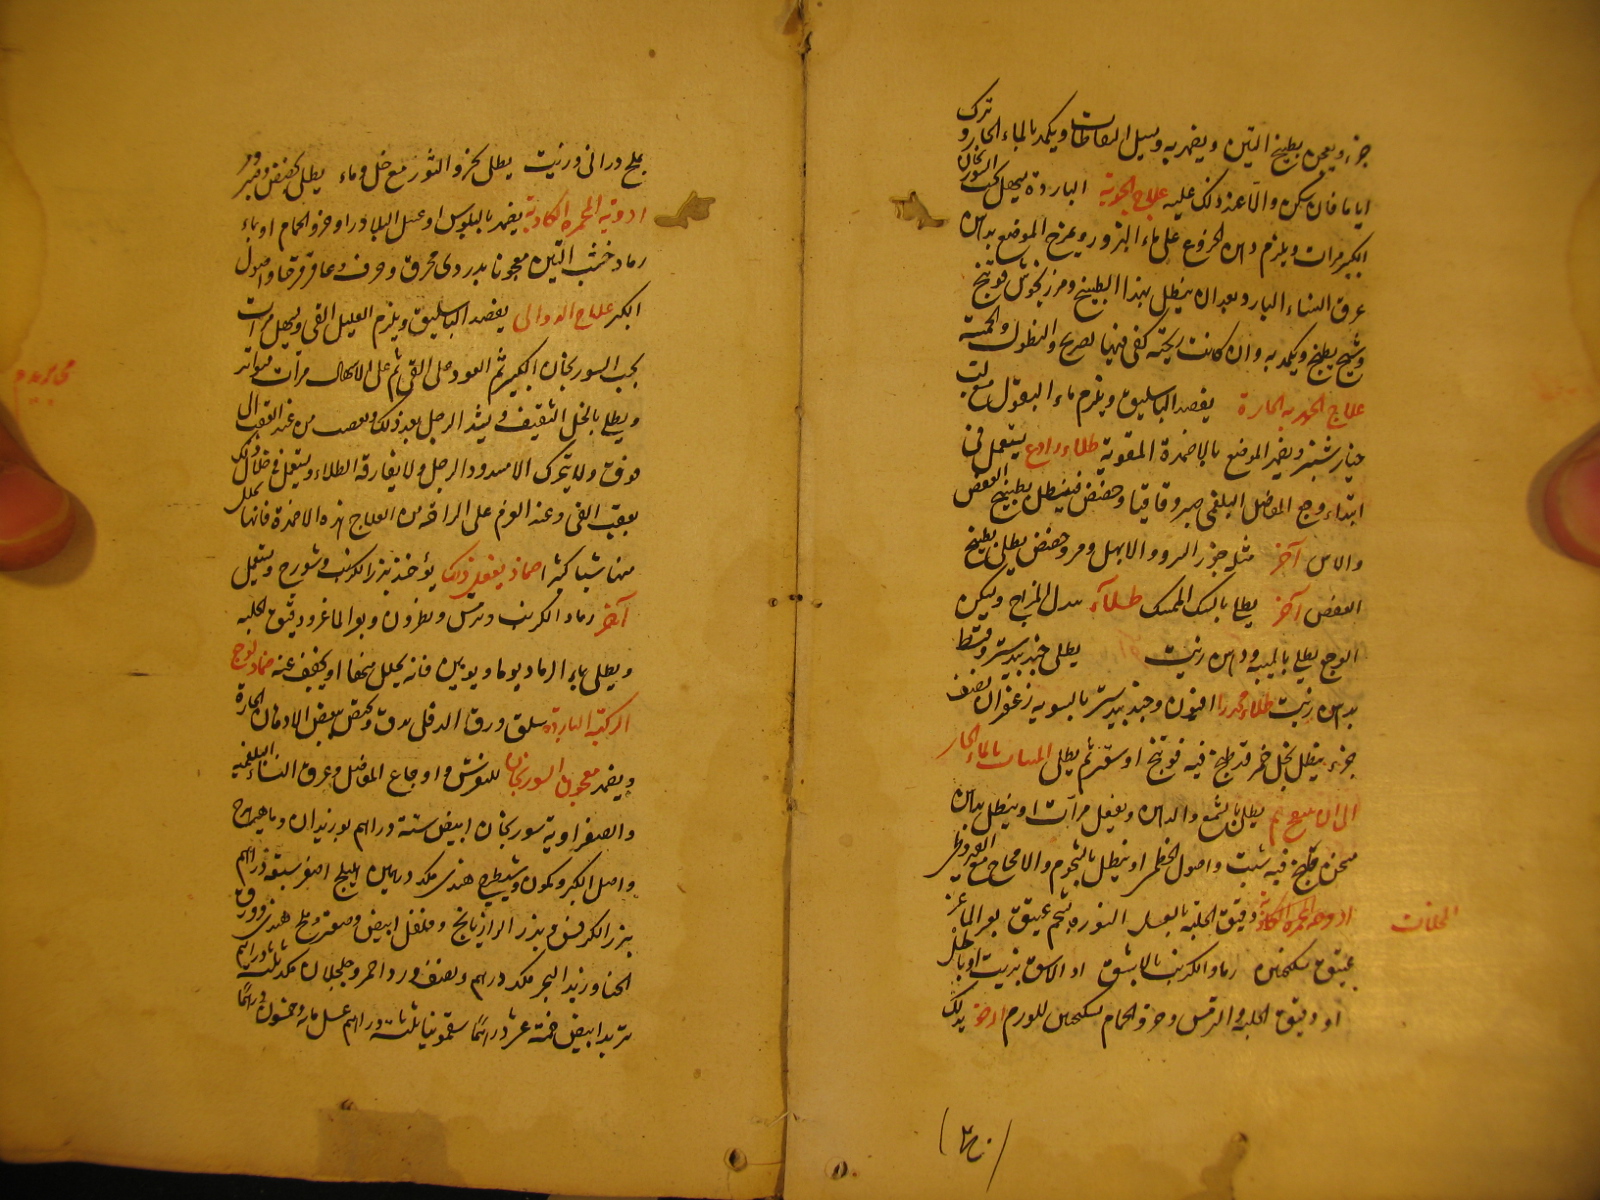 جزء ويعجن بطبيخ التين ويضمد به وسيل النفاطات ويكمد بالماء الحار و ترك
اياما فان سكن والا عند ذلك عليه علاج الحدبة الباردة يسهل بحب السورنجان
الكبير مرات ويلزم دهن الخروع على ماء البزور ويمرخ الموضع بدهن
عرق النساء البارد بعد ان ينطل بهذا الطبيخ ومرزنجوش فوتنج
وشيح يطبخ ويكمد به وان كانت ريحية كفى فيها تصريح والنطول والحمية
علاج الحدبة الحارة يفصد الباسليق ويلزم ماء البقول مع لب
خيار شنبر ويضمد الموضع بالاضمدة المقوية طلاء رادع يستعمل في
ابتداء وجع المفاصل البلغمي صبر وقاقيا وحضض فينطل بطبيخ العفص
والاس آخر مثل جوز السرو والابهل ومر وحضض يطلى بطبيخ
العفص آخر يطلى بالسك الممسك طلاء يبدل المزاج ويسكن
الوجع يطلى بالميبه ودهن زنبق يطلى جندبيدستر وقسط
بدهن زنبق طلاء مخدر افيون وجندبيدستر بالسوية زعفران نصف
جزء ينطل بخل خمر قد طبخ فيه فوتنج او سعتر ثم يطلى بالماء الحار
يطلى بالشمع والدهن ويفعل مرات او ينطل بدهن
سخن قد طبخ فيه شبت واصول الخطمى او ينطل بالشحوم والامخاخ مع القيروطى
المحللات
ادوية المحمرة الكاوية دقيق الحلبة بالعسل النورة بشحم عتيق بعر الماعز
عتيق بسكنجبين رماد الكرنب بالاشق او الاشق بزيت او باطل
او دقيق الحلبة والترمس وخرو الحمام بسكنجبين للورم الرخو يدلك
(٢٠)
بملح درانى وزيت يطلى بخرو الثور مع خل وماء يطلى بحضض وصبر و
ادوية المحمرة الكاوية يضمد بالبلبوس او عسل البلادر او خرو الحمام او بماء
رماد خشب التين معجونا بدردى محرق وحرف وعاقرقرحا واصول
الكبر علاج الدوالى يفصد الباسليق ويلزم العليل القى ويسهل مرات
بحب السورنجان الكبير ثم العود على القى ثم على الاسهال مرات متواتر
ويطلى بالخل الثقيف ويشد الرجل بعد ذلك وتعصب من عند العقب الى
فوق ولا يترك الا مسدود الرجل ولا يفارقه الطلاء ويستعمل في خلال ذلك
بعقب القى وعند العزم على الراحة من العلاج هذه الاضمدة فانها تحلل
منها شيا كثيرا ضماد يفعل ذلك يؤخذ بزر الكرنب وشيرج ويستعمل
آخر رماد الكرنب وترمس ونطرون وبعر الماعز ودقيق الحلبة
ويطلى بماء الرماد يوما ويومين فانه يحلل منها او يخفف عنه ضماد لوجع
الركبة الباردة سلق ورق الدفلى يدق ويخبص ببعض الادهان الحارة
ويضمد معجون السورنجان للنقرس واوجاع المفاصل وعرق النساء البلغمية
والصفراوية سورنجان ابيض ستة دراهم بوزيدان وماهيزهرج
واصل الكبر وكمون وشيطرج هندى مكد درهمين اهليلج اصفر سبعة دراهم
بزر الكرفس وبزر الرازيانج وفلفل ابيض وصعتر وملح هندى وورق
الحنا وزبد البحر مكد درهم ونصف ورد احمر وجلجلان مكد ثلث دراهم
تربد ابيض خمسة عشر درهما سقمونيا ثلثة دراهم عسل مائة وخمسون درهما